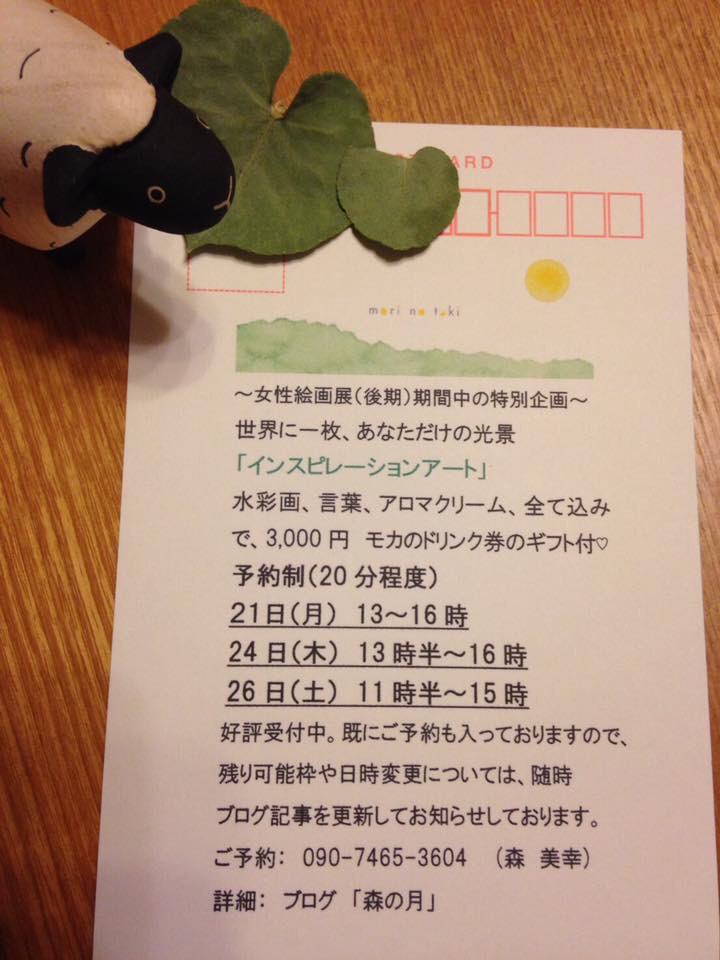 ARD
mori no tuki
～女性絵画展（後期）期間中の特別企画～
世界に一枚、あなただけの光景
「インスピレーションアート」
水彩画、言葉、アロマクリーム、全て込み
で、3,000円　モカのドリンク券のギフト付♡
予約制（20分程度）
21日（月）　13～16時
24日（木）　13時半～16時
26日（土）　11時半～15時
好評受付中。既にご予約も入っておりますので、
残り可能枠や日時変更については、随時
ブログ記事を更新してお知らせしております。
ご予約：　090-7465-3604　（森　美幸）
詳細：　ブログ　「森の月」